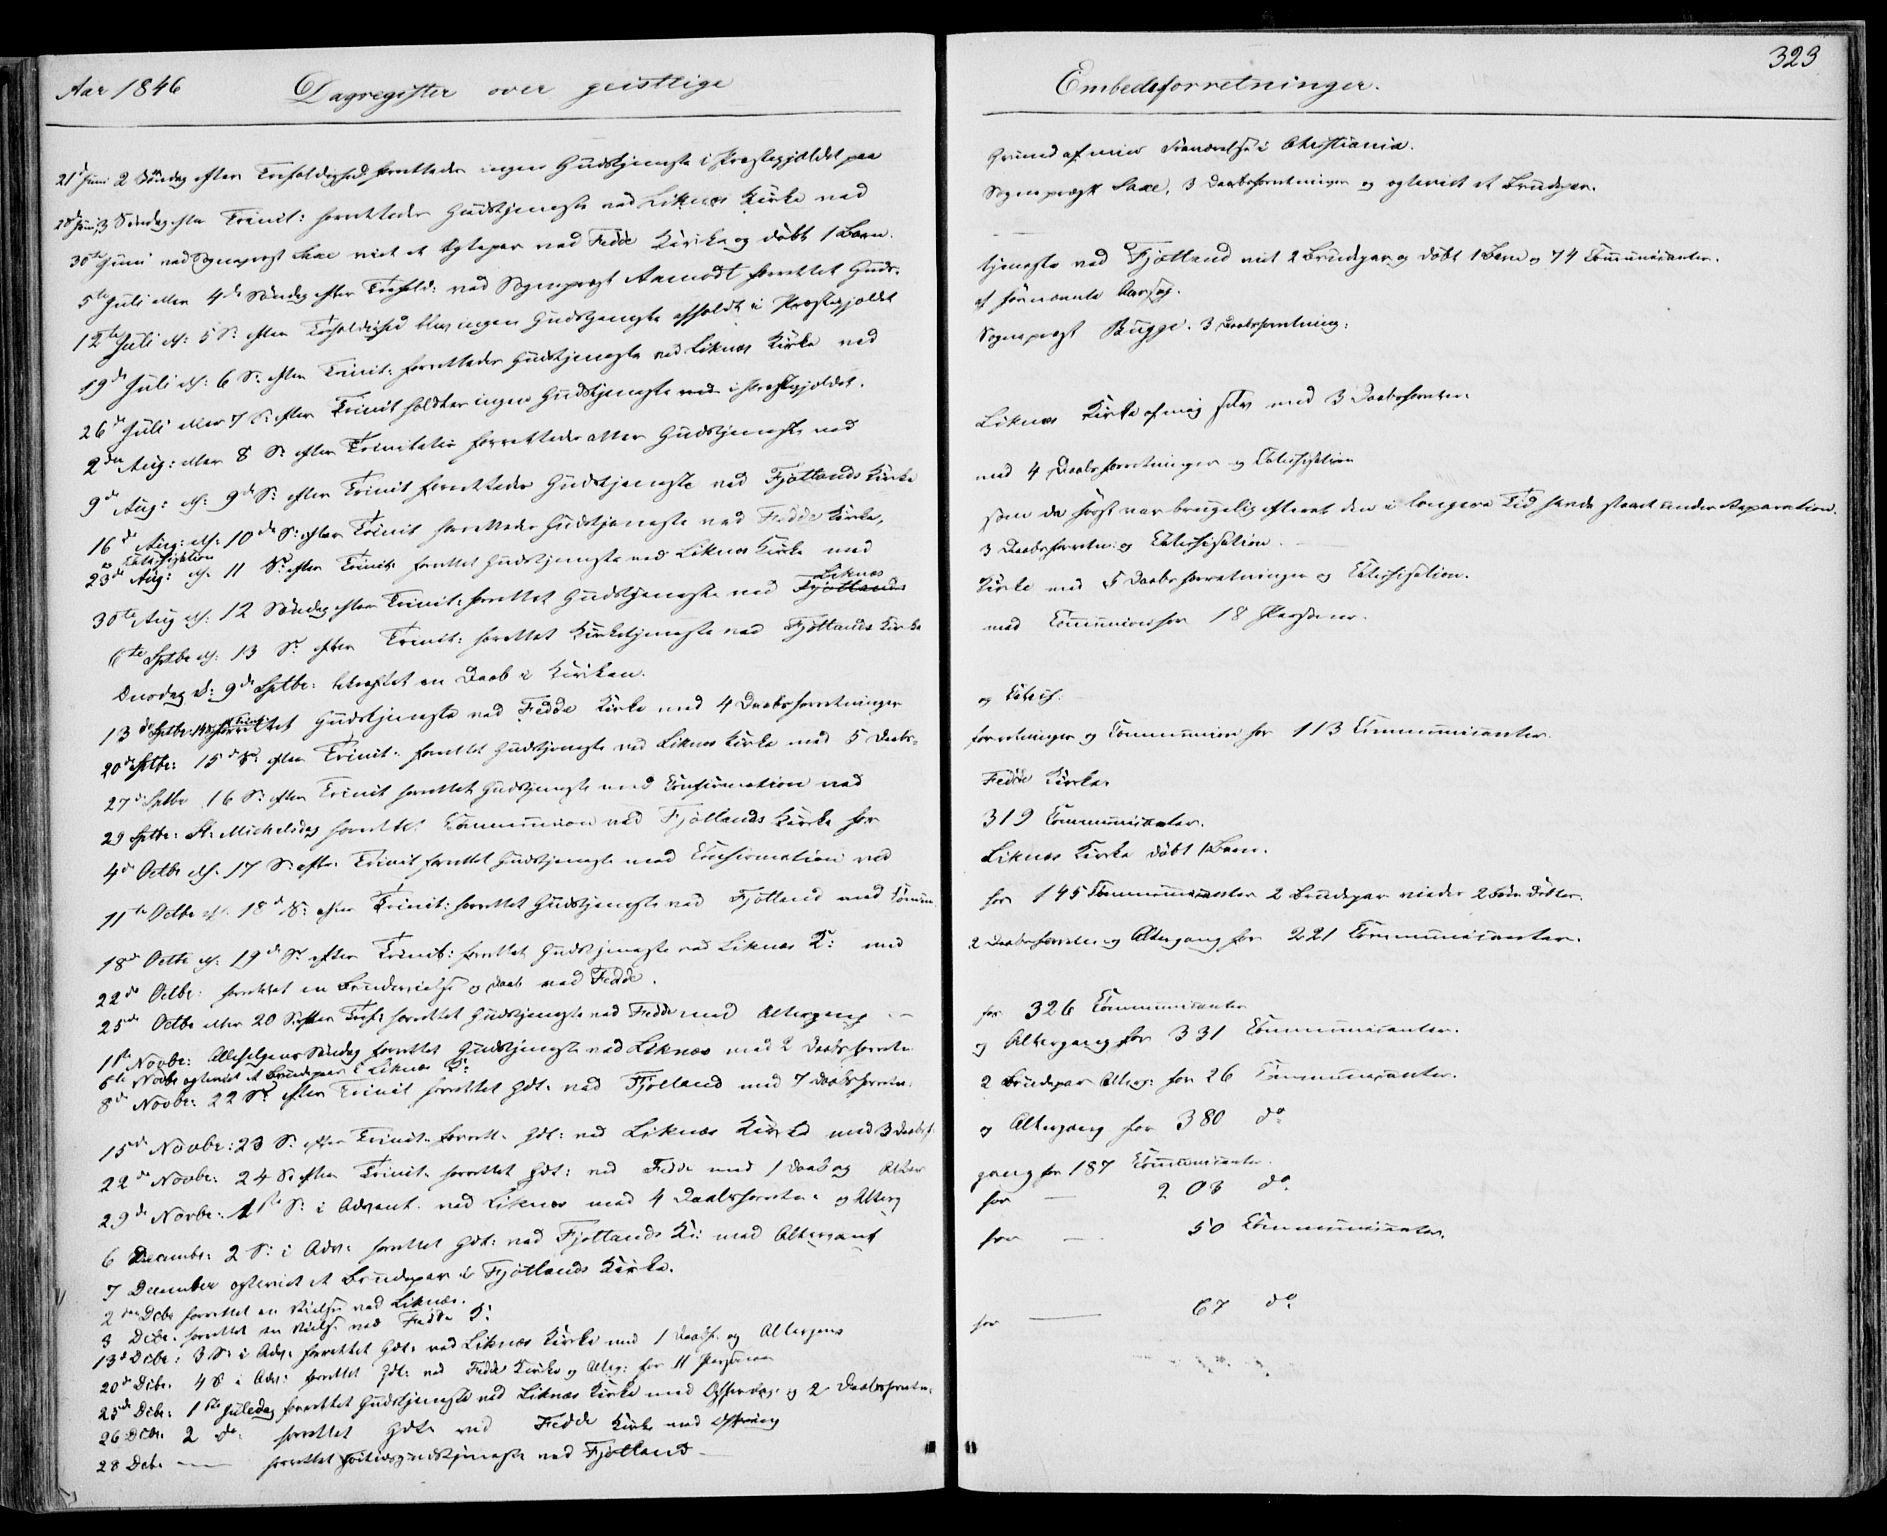 Aar 1846 Dagregister over geistlige
21 Juni 2 Søndag efter Trefoldighed forrettedes ingen Gudstjeneste i Præstegjældet paa
28de Juni, 3 Søndag efter Trinit: forrettedes Gudstjeneste ved Liknes Kirke ved
30te Juni ved Sognepræst Saxe viet et Ægtepar ved Fedde Kirke og døbt 1 Barn.
5te Juli eller 4de Søndag efter Trefold: ved Sognepræst Aamodt forrettet Guds-
12te Juli ell: 5 S: efter Trefoldighed blev ingen Gudstjeneste afholdt i Præstegjældet
19de Juli ell: 6 S: efter Trinit: forrettedes Gudstjeneste ved Liknes Kirke ved
26de Juli eller 7 S: efter Trinit holdtes ingen Gudstjeneste i Præstegjældet.
2den Aug: eller 8 S: efter Trinitatis forrettedes atter Gudstjeneste ved
9de Aug: ell: 9de S: efter Trinit forrettedes Gudstjeneste ved Fjotlands Kirke
16de Aug: ell: 10de S: efter Trinit forrettedes Gudstjeneste ved Fedde Kirke,
Catechisation
23de Aug: ell. 11 S: efter Trinit: forrettet Gudstjeneste ved Liknes Kirke med
Liknes
30te Aug ell: 12 Søndag efter Trinit: forrettet Gudstjeneste ved Fjotlands
6te Septbr ell: 13 S: efter Trinit: forrettet Kirketjeneste ved Fjotlands Kirke
Onsdag d: 9de Septbr: bekræftet en Daab i Kirken.
13de Septbr: forrettet Gudstjeneste ved Fedde Kirke med 4 Daabsforretninger
20de Septbr: 15de S: efter Trinit: forrettet Gudstjeneste ved Liknes Kirke med 5 Daabs-
27de Septbr 16 S: efter Trinit forrettet Gudstjeneste med Confirmation ved
29 Septbr: St: Michelsdag forrettet Communion ved Fjotlands Kirke for
4de Octbr ell. 17 S: efter Trinit forrettet Gudstjeneste med Confirmation ved
11te Octbr ell. 18de S: efter Trinit: forrettet Gudstjeneste ved Fjotland med Commun.
18de Octbr ell. 19de S: efter Trinit: forrettet Gudstjeneste ved Liknes K: med
22de Octbr: forrettet en Brudevielse og Daab ved Fedde.
25de Octbr eller 20 S: efter Tref: forrettet Gudstjeneste ved Fedde med Altergang
1ste Novbr: Allehelgens Søndag forrettet Gudstjeneste ved Liknes med 2 Daabsforretn
6te Novbr ægteviet et Brudepar i Liknes K:
8de Novbr: 22 S: efter Trinit forrettet Gdt: ved Fjotland med 7 Daabsforretn.
15de Novbr: 23 S: efter Trinit. forrett. Gdt: ved Liknes Kirke med 3 Daabsf.
22de Novbr: 24 S: efter Trinit. forrettet Gdt: ved Fedde med 1 Daab og Alter
29de Novbr: 1ste S: i Advent. ved Liknes med 4 Daabsforretn: og Alterg
6 Decembr: 2 S: i Adv: forrettet Gdt: ved Fjotlands K: med Altergang
7 December ægteviet et Brudepar i Fjotlands Kirke.
2den Decbr forrettet en Vielse ved Liknes.
3 Decbr. forrettet en Vielse ved Fedde K:
13de Decbr: 3 S: i Adv: forrettet Gdt: ved Liknes Kirke med 1 Daabsf. og Altergang
20de Decbr. 4 S i Adv: forrettet Gdt: ved Fedde Kirke og Alterg: for 11 Personer
25de Decbr: 1ste Juledag forrettet Gudstjeneste ved Liknes Kirke med og 2 Daabsforretn.
26 Decbr. 2 do. forrettet Gdt: ved Fedde Kirke med
28 Decbr forrettet ved Fjotland
323
Embedsforretninger.
Grund af min Fraværelse i Christiania.
Sognepræst Saxe, 3 Daabsforretninger og ægteviet et Brudepar.
tjeneste ved Fjotland viet 2 Brudepar og døbt 1 Barn og 74 Communicanter.
af fornævnte Aarsag.
Sognepræst Bugge. 3 Daabsforretning:
Liknes Kirke af mig selv med 3 Daabsforretn:
med 4 Daabsforretninger og Catechisation
som da først var brugelig efterat den i længere Tid havde staaet under Reparation.
3 Daabsforretn: og Catechisation.
Kirke med 5 Daabsforretninger og Catechisation.
med Communion for 18 Personer.
og Catech.
forretninger og Communion for 113 Communicanter.
Fedde Kirke
319 Communicanter.
Liknes Kirke døbt 1 Barn.
for 145 Communicanter 2 Brudepar viede 2 Børn Døbte.
2 Daabsforretn: og Altergang for 221 Communicanter.
for 326 Communicanter
og Altergang for 331 Communicanter.
2 Brudepar Alterg: for 26 Communicanter.
og Altergang for 380 do
gang for 187 Communicanter.
for — 203 do
for — 50 Communicanter.
for — 67 do